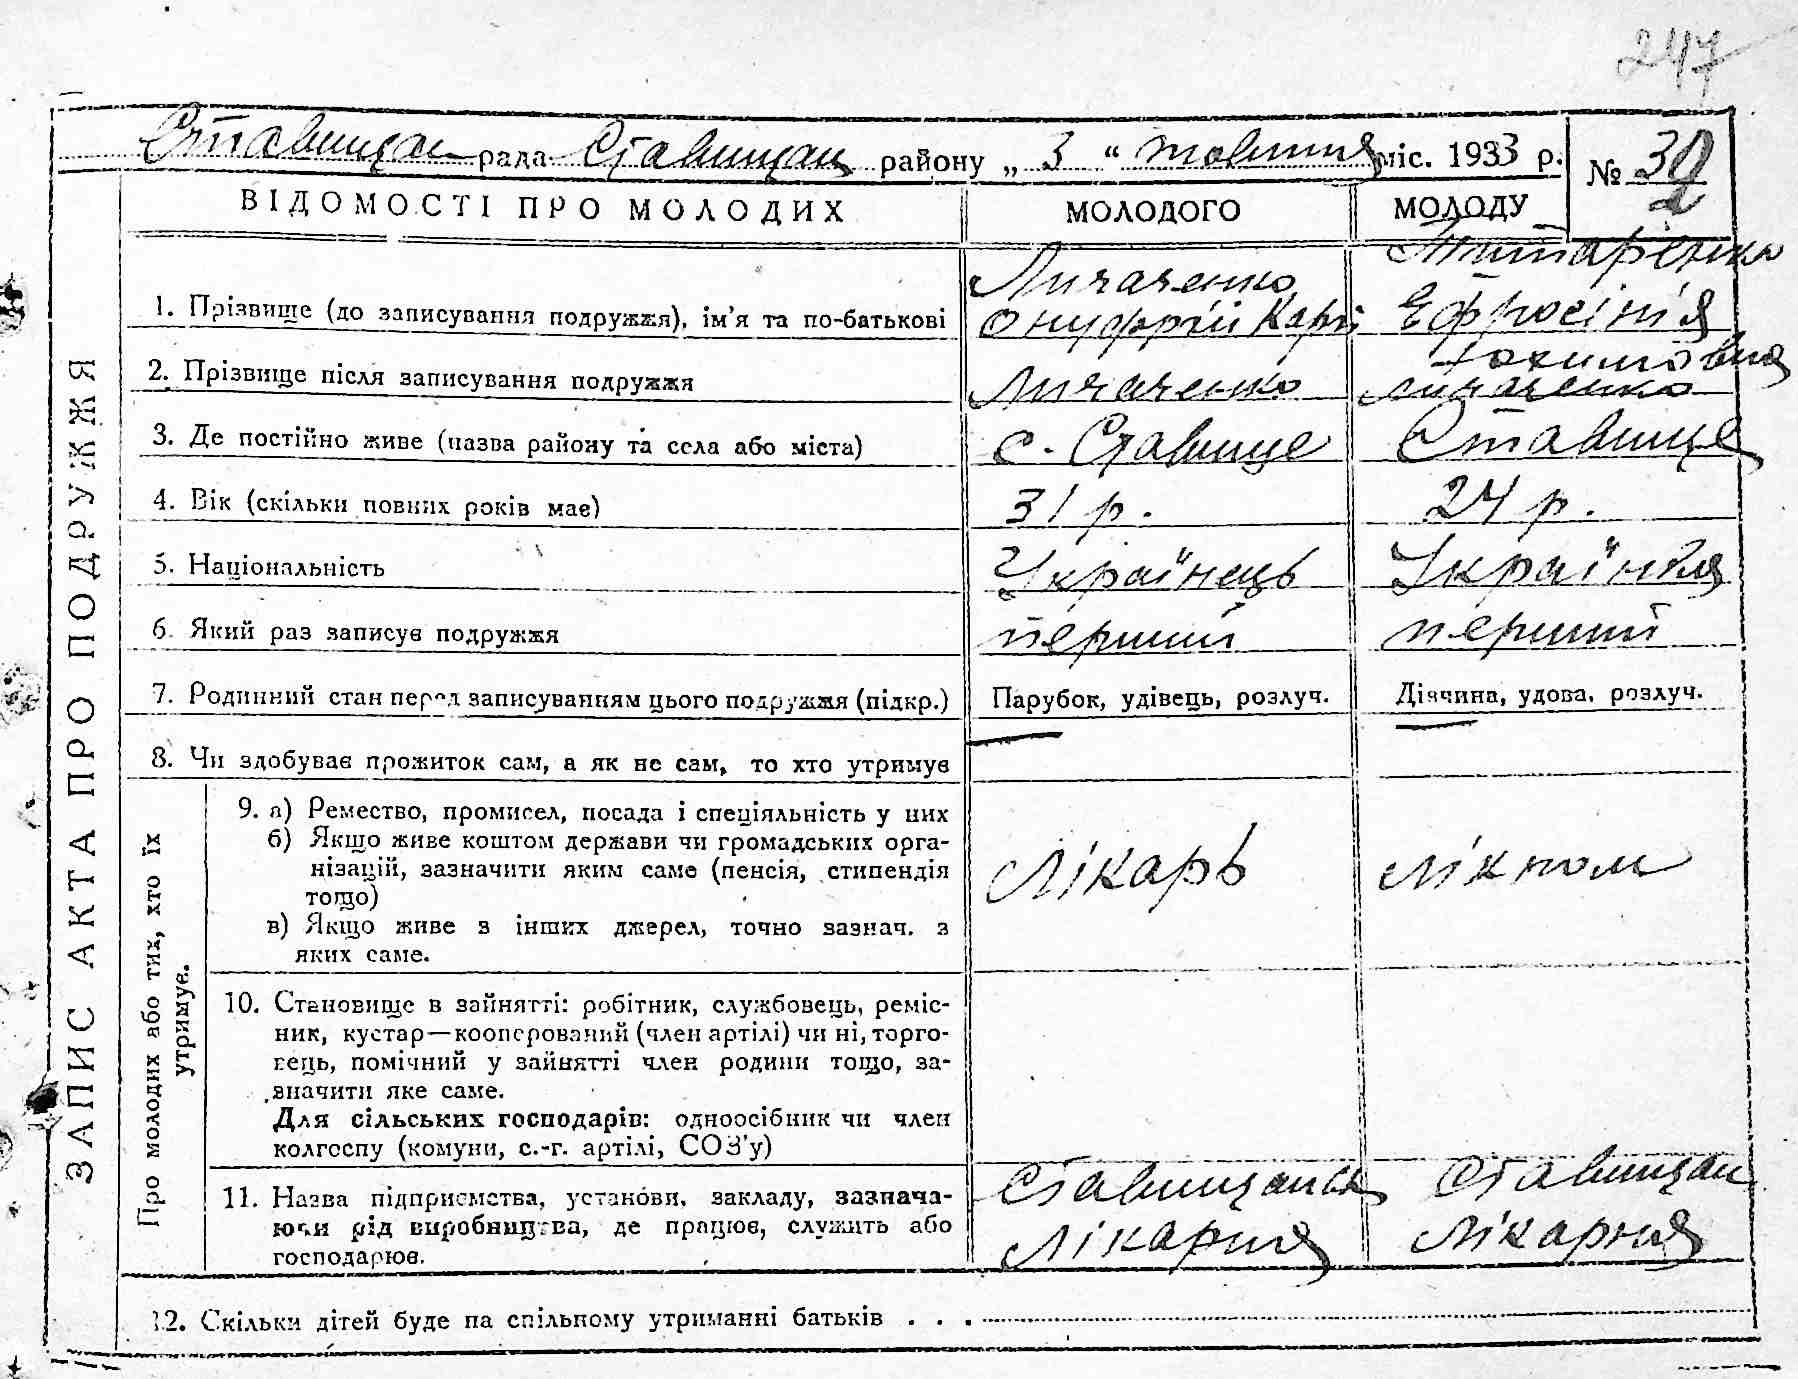 247
Ставищан рада Ставищан району „ 3 “ жовтня міс. 1933 р.
№ 30
ВІДОМОСТІ ПРО МОЛОДИХ
МОЛОДОГО
МОЛОДУ
ЗАПИС АКТА ПРО ПОДРУЖЖЯ
1. Прізвище (до записування подружжя), ім’я та по-батькові
Личаченко
Онуфрій Карп
Титаренко
Ефросінія
Юхимовна
2. Прізвище після записування подружжя
Личаченко
Личаченко
3. Де постійно живе (назва району та села або міста)
с. Ставище
Ставище
4. Вік (скільки повних років має)
31 р.
24 р.
5. Національність
Українець
Українка
6. Який раз записує подружжя
перший
перший
7. Родинний стан перед записуванням цього подружжя (підкр.)
Парубок, удівець, розлуч.
Дівчина, удова, розлуч.
8. Чи здобуває прожиток сам, а як не сам, то хто утримує
Про молодих або тих, хто їх
утримує.
9. а) Ремество, промисел, посада і спеціяльність у них
б) Якщо живе коштом держави чи громадських орга-
нізацій, зазначити яким саме (пенсія, стипендія
тощо)
в) Якщо живе з інших джерел, точно зазнач. з
яких саме.
Лікарь
лікпом
10. Становище в зайнятті: робітник, службовець, реміс-
ник, кустар—кооперований (член артілі) чи ні, торго-
вець, помічний у зайнятті член родини тощо, за-
значити яке саме.
Для сільських господарів: одноосібник чи член
колгоспу (комуни, с.-г. артілі, СОЗ’у)
11. Назва підприємства, установи, закладу, зазнача-
ючи рід виробництва, де працює, служить або
господарює.
Ставищанск
Лікарня
Ставищан
Лікарня
12. Скільки дітей буде на спільному утриманні батьків . . .